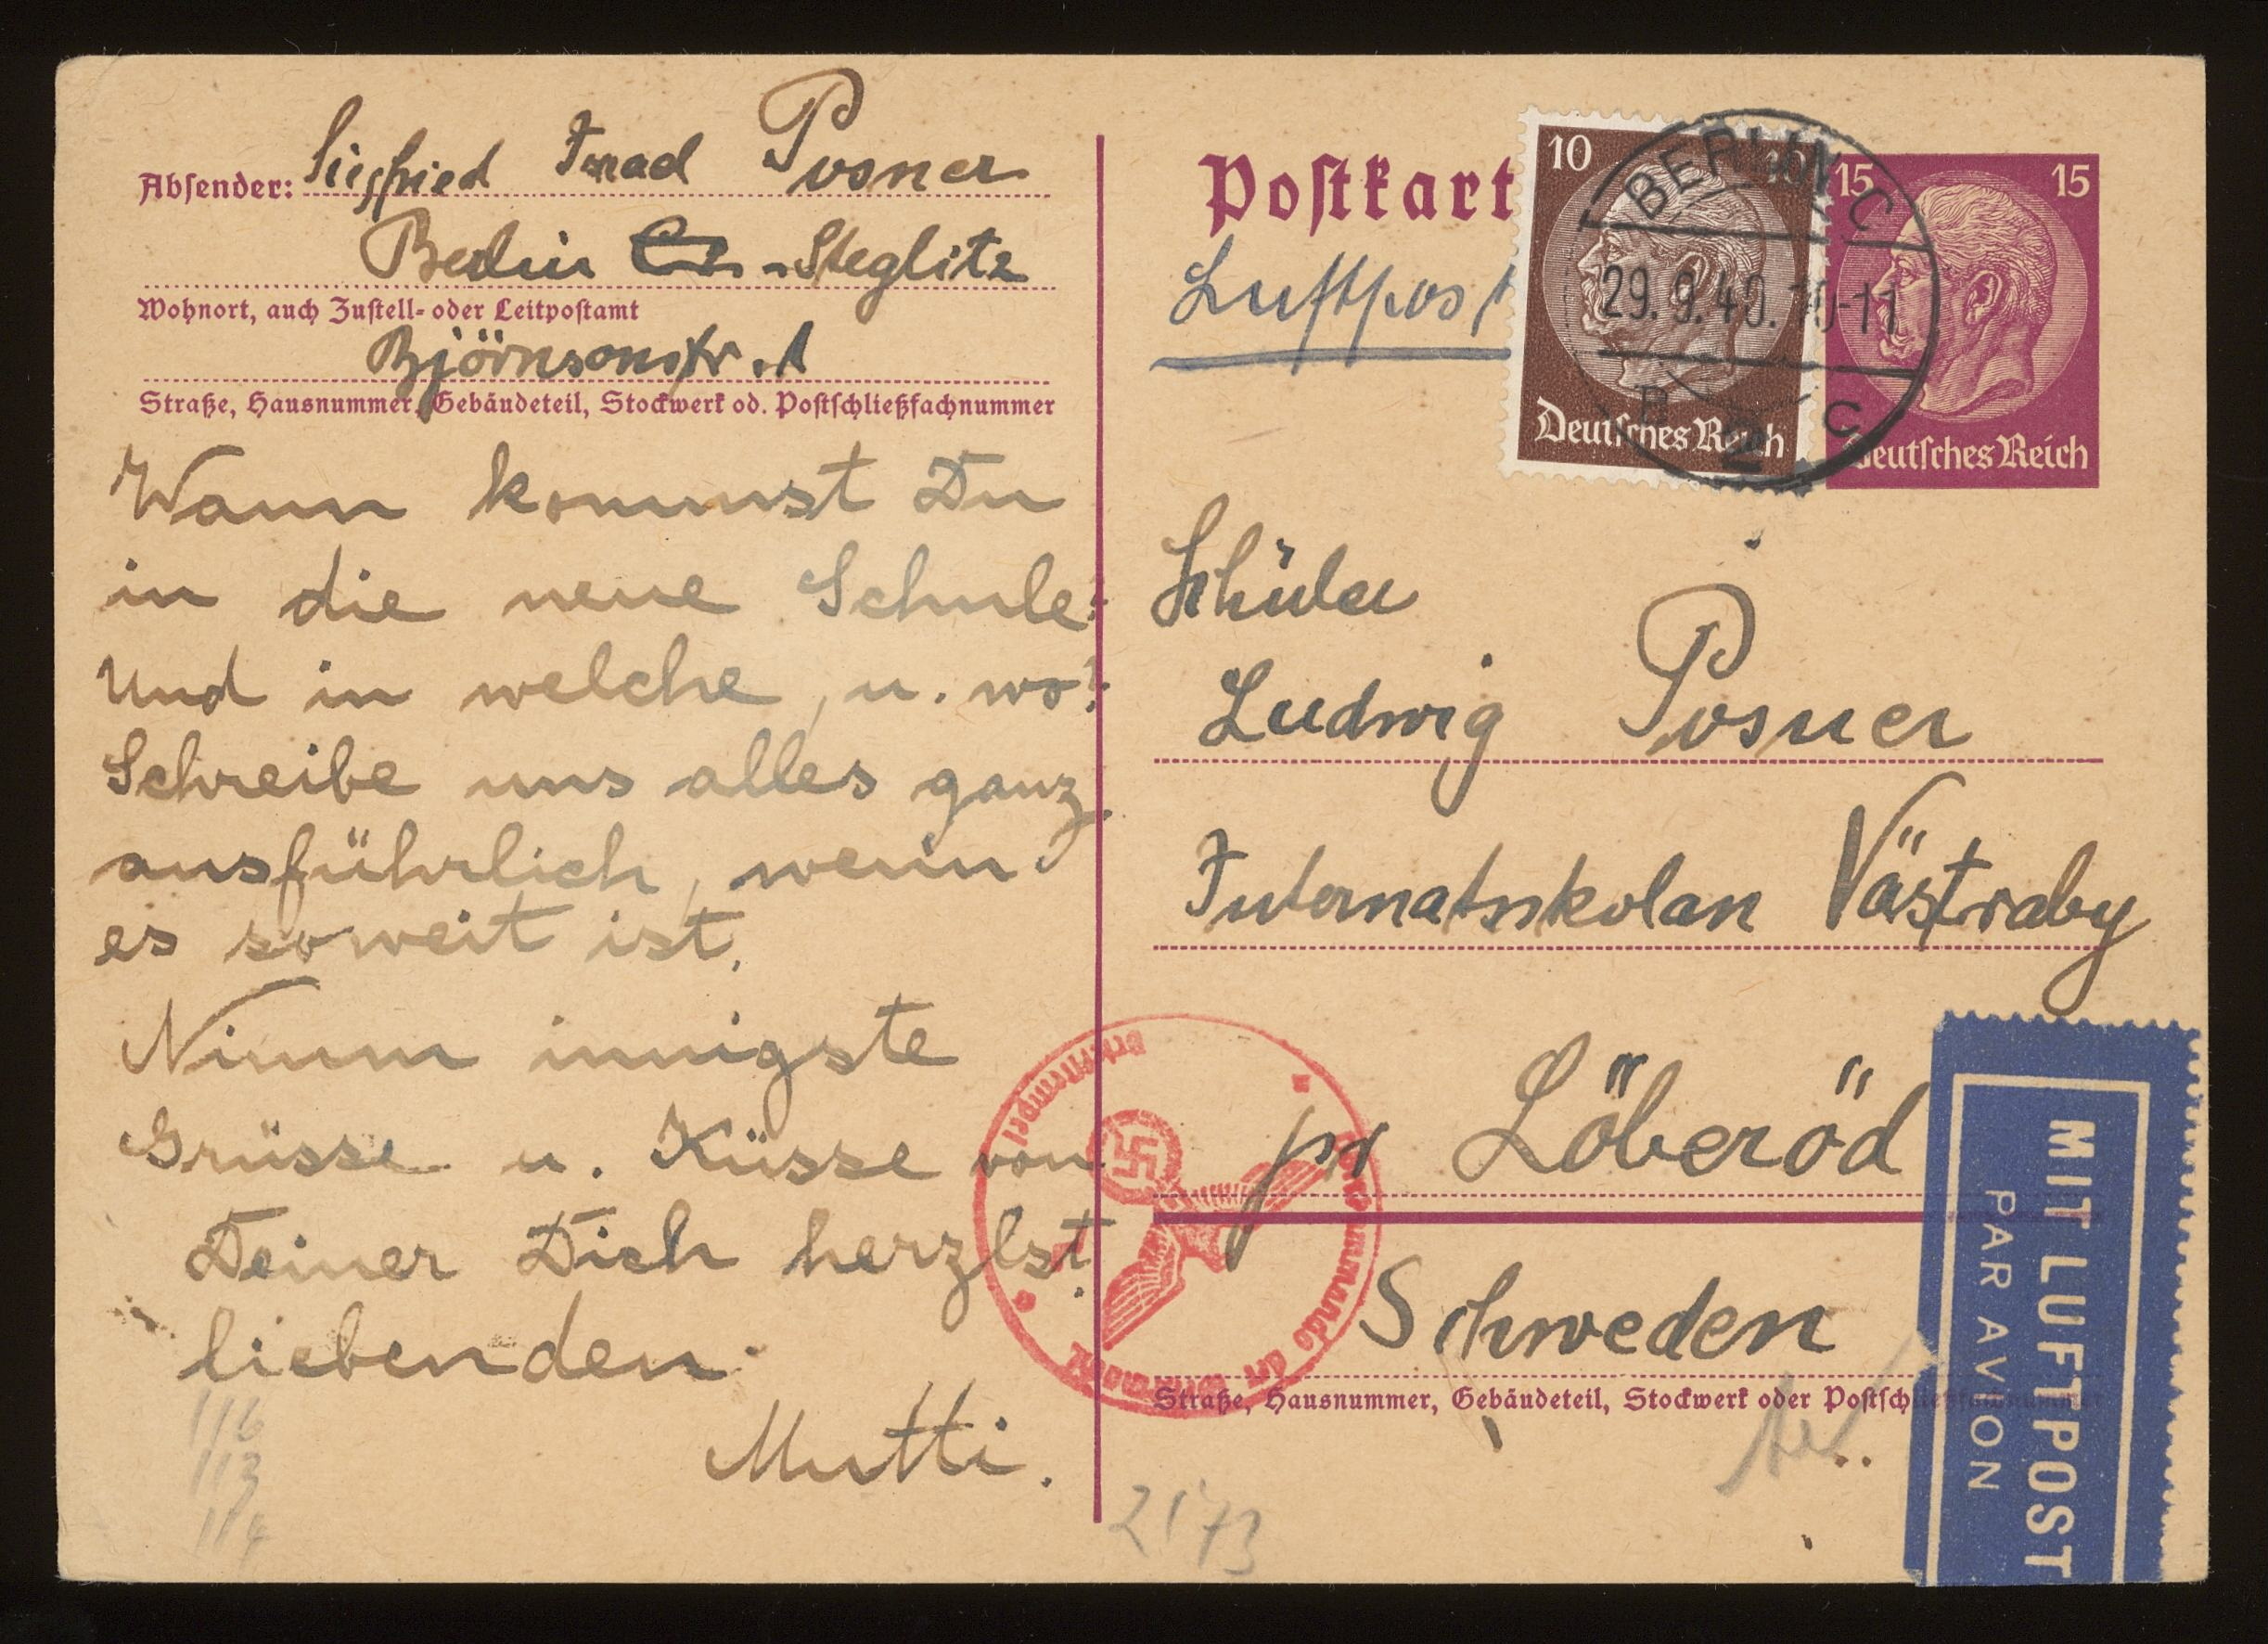 Absender: Siegfried Israel Posner
Berlin -Steglitz
Wohnort, auch Zustell- oder Leitpostamt
Björnsonstr. 1
Straße, Hausnummer, Gebäudeteil, Stockwerk od. Postschließfachnummer
Wann kommst Du
in die neue Schule?
Und in welche, u. wo?
Schreibe uns alles ganz
ausführlich, wenn
es soweit ist.
Nimm innigste
Grüsse u. Küsse von
Deiner Dich herzlst.
liebenden
Mutti.
116
113
114
Postkart
Luftpost
10 10
Deutsches Reich
15 15
Deutsches Reich
BERLIN C
29.9.40. 10-11
C 2
Schüler
Ludwig Posner
Internatskolan Västraby
pr Löberöd
Schweden
Straße, Hausnummer, Gebäudeteil, Stockwerk oder Postschließfachnummer
MIT LUFTPOST
PAR AVION
2173